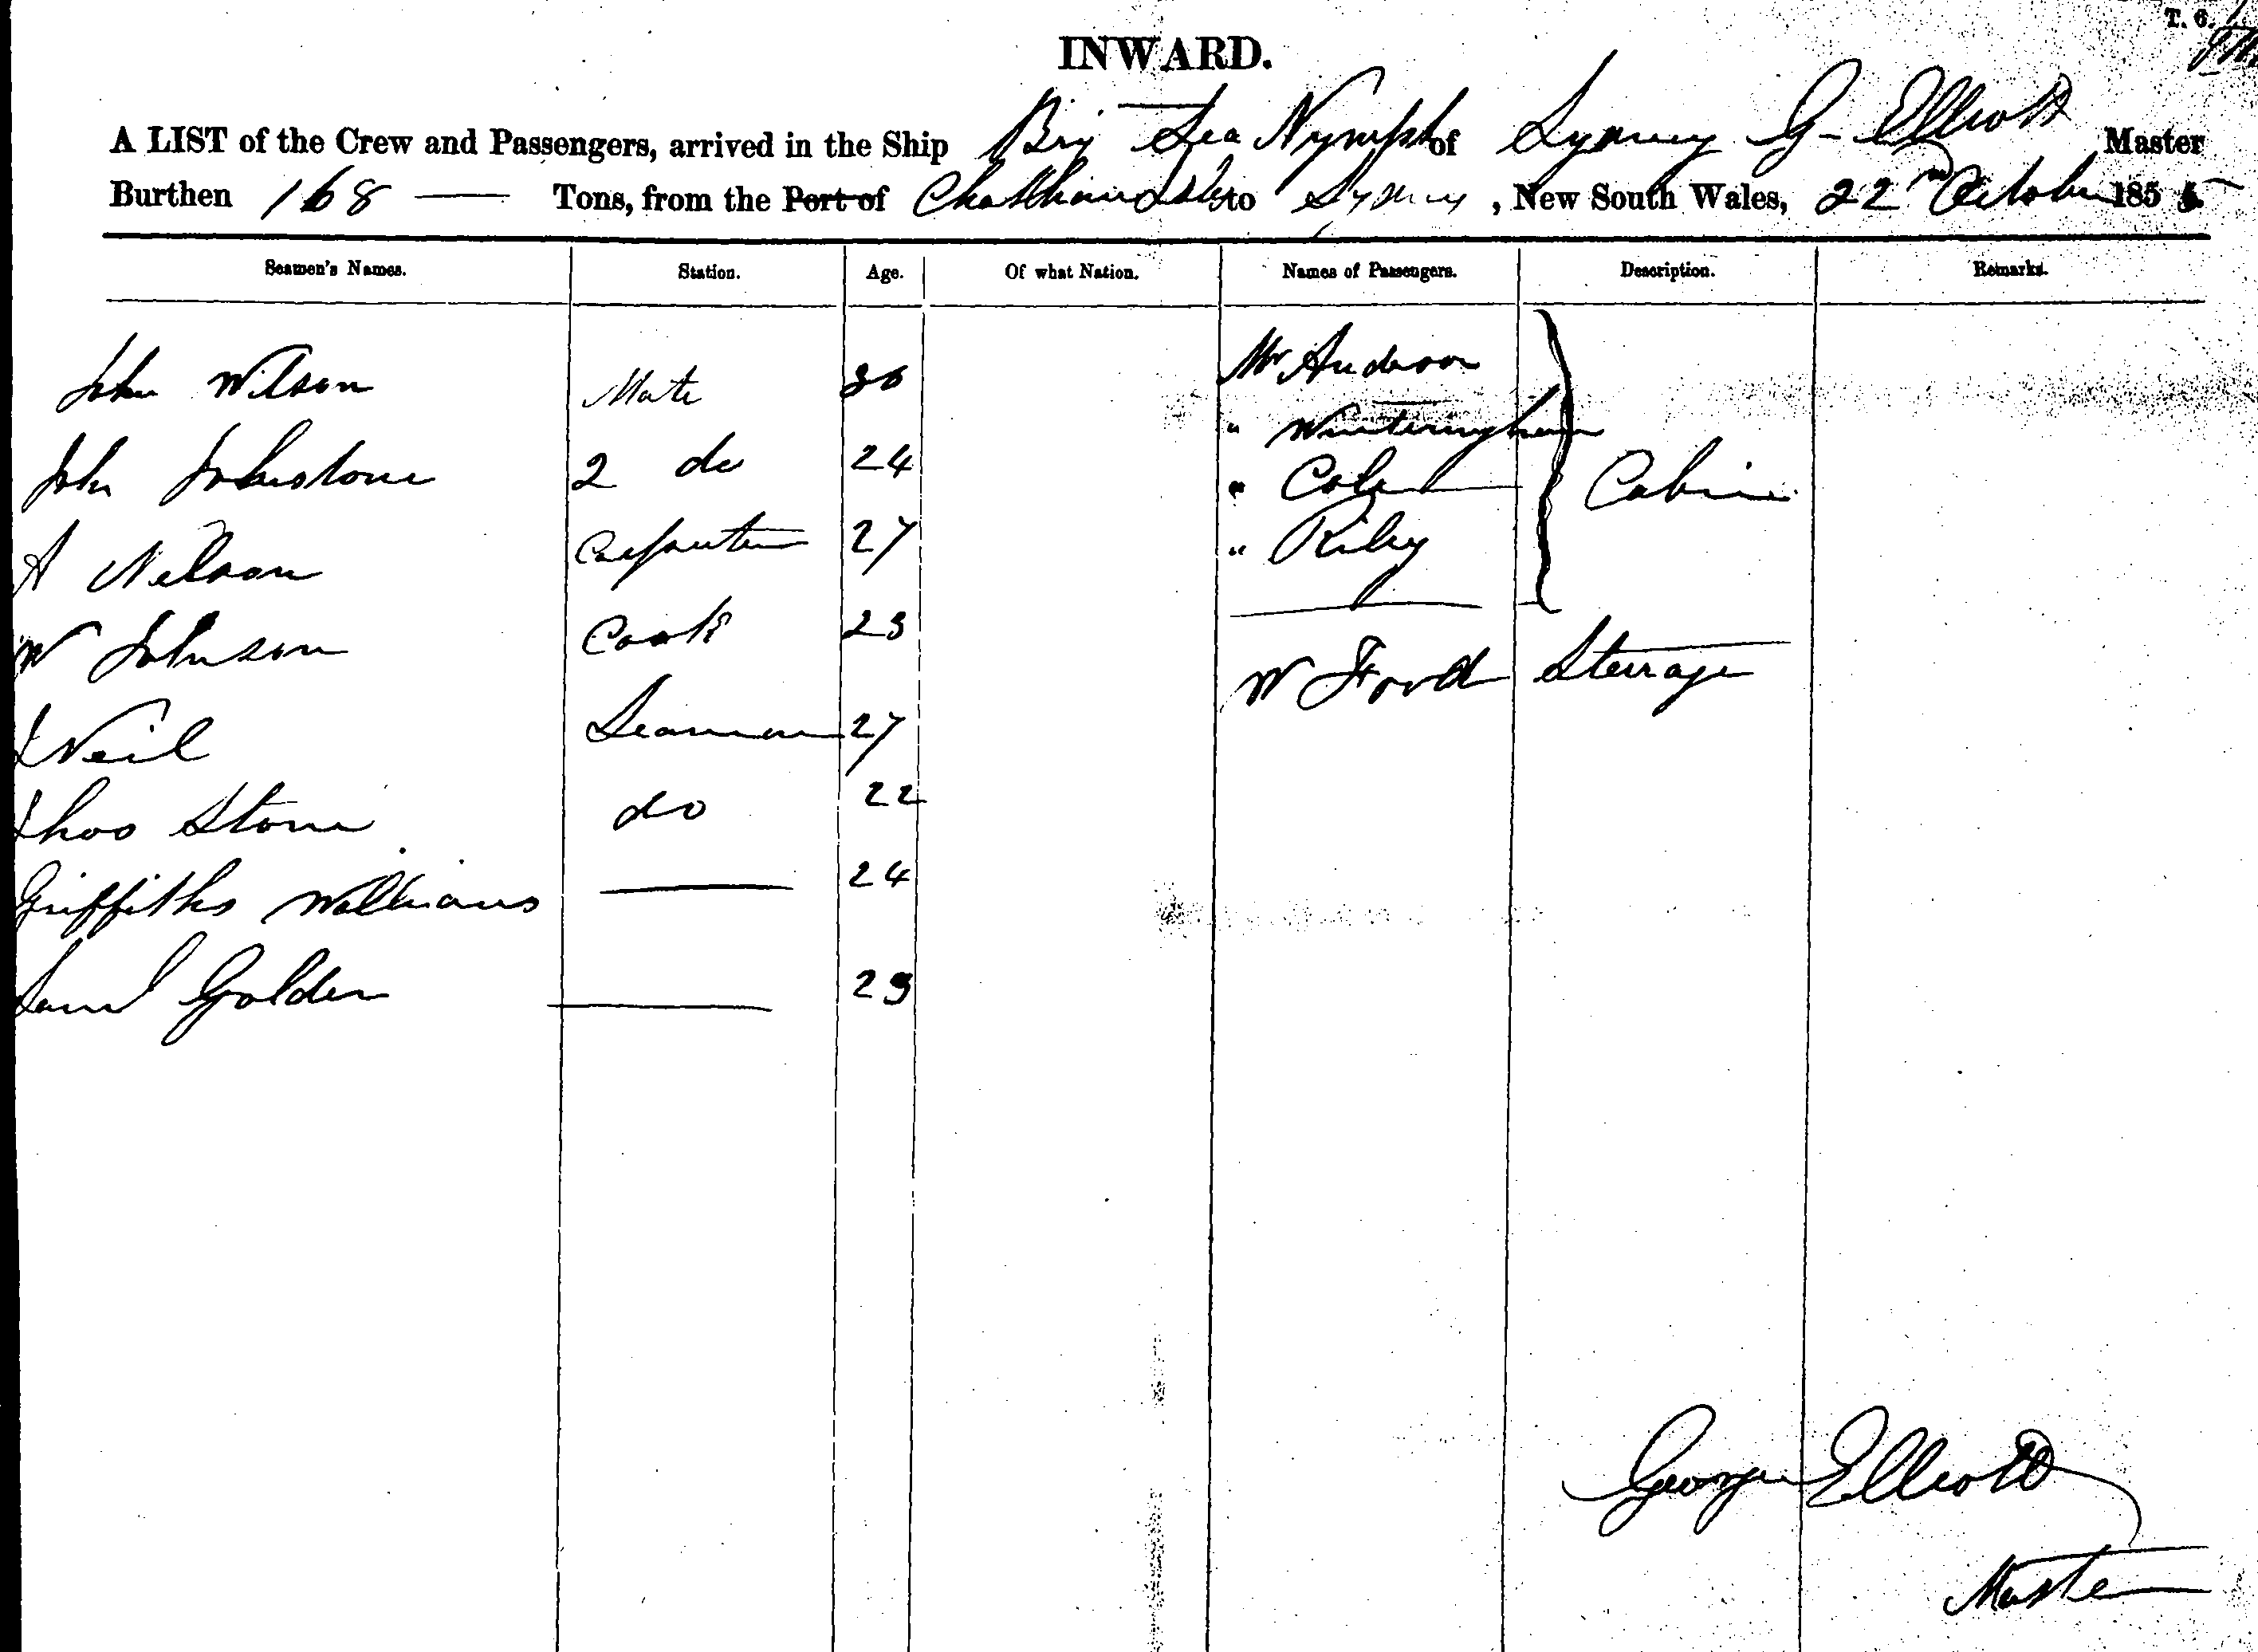 T. 6.
INWARD.
A LIST of the Crew and Passengers, arrived in the Ship Brig Sea Nymph of Sydney G- Elliott Master
Burthen 168 — Tons, from the Port of Chatham Isles to Sydney, New South Wales, 22nd October 1855
Seamen's Names. Station. Age. Of what Nation. Names of Passengers. Description. Remarks.
John Wilson Mate 30 Mr Anderson
" Winteringham
John Johnstone 2 do 24 " Cole Cabin
A Nelson Carpenter 27 " Riley
W Johnson Cook 23 W Ford Steerage
Neil Seaman 27
Thos Stone do 22
Griffiths Williams — 24
Saml Golden — 29
George Elliott
Master